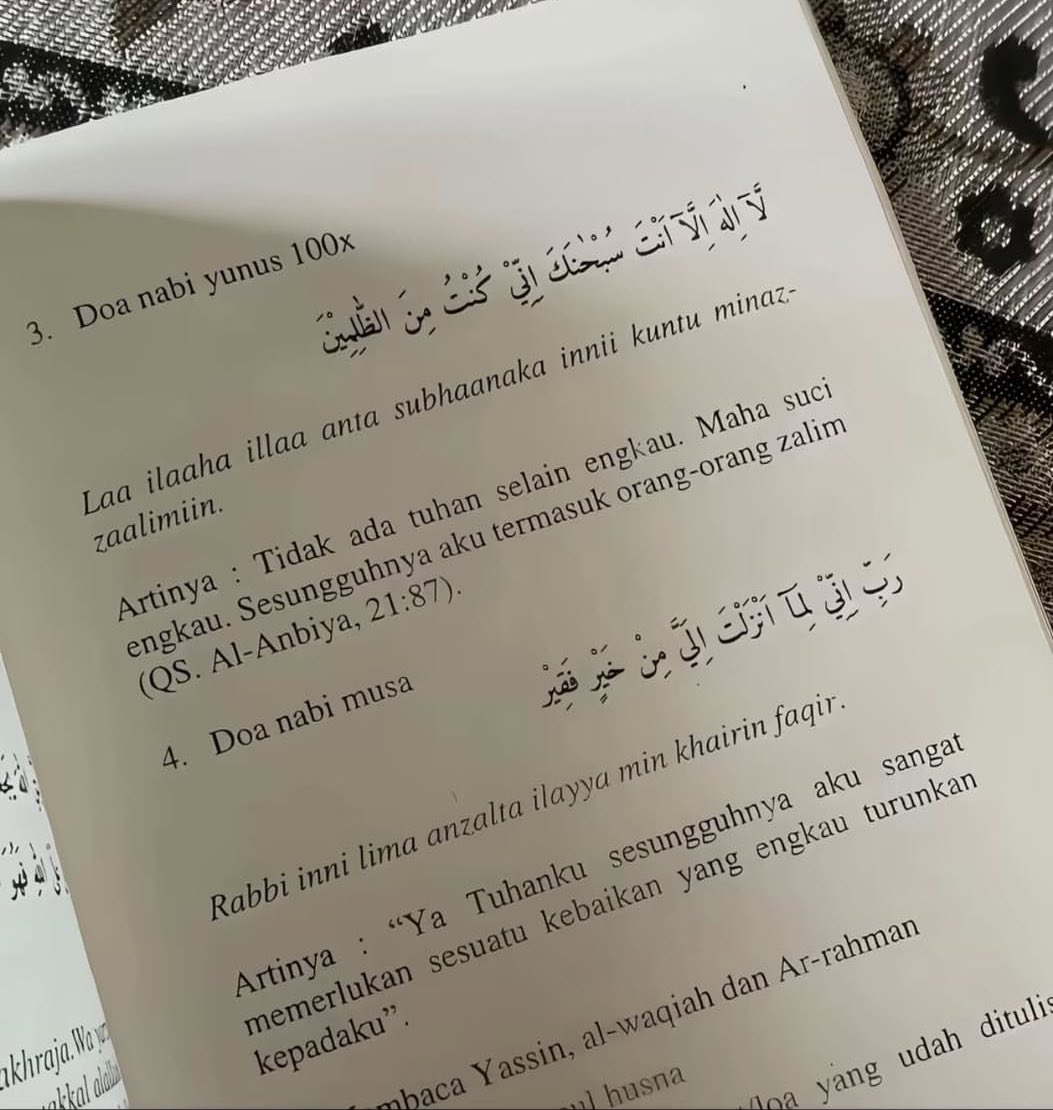 3. Doa nabi yunus 100x
لَّآ اِلٰهَ اِلَّآ اَنْتَ سُبْحٰنَكَ اِنِّيْ كُنْتُ مِنَ الظّٰلِمِيْنَ
Laa ilaaha illaa anta subhaanaka innii kuntu minaz-
zaalimiin.
Artinya : Tidak ada tuhan selain engkau. Maha suci
engkau. Sesungguhnya aku termasuk orang-orang zalim
(QS. Al-Anbiya, 21:87).
4. Doa nabi musa
رَبِّ اِنِّيْ لِمَآ اَنْزَلْتَ اِلَيَّ مِنْ خَيْرٍ فَقِيْرٌ
Rabbi inni lima anzalta ilayya min khairin faqir.
Artinya : “Ya Tuhanku sesungguhnya aku sangat
memerlukan sesuatu kebaikan yang engkau turunkan
kepadaku”.
Yassin, al-waqiah dan Ar-rahman
husna
yang udah ditulis
akhraja.Wa